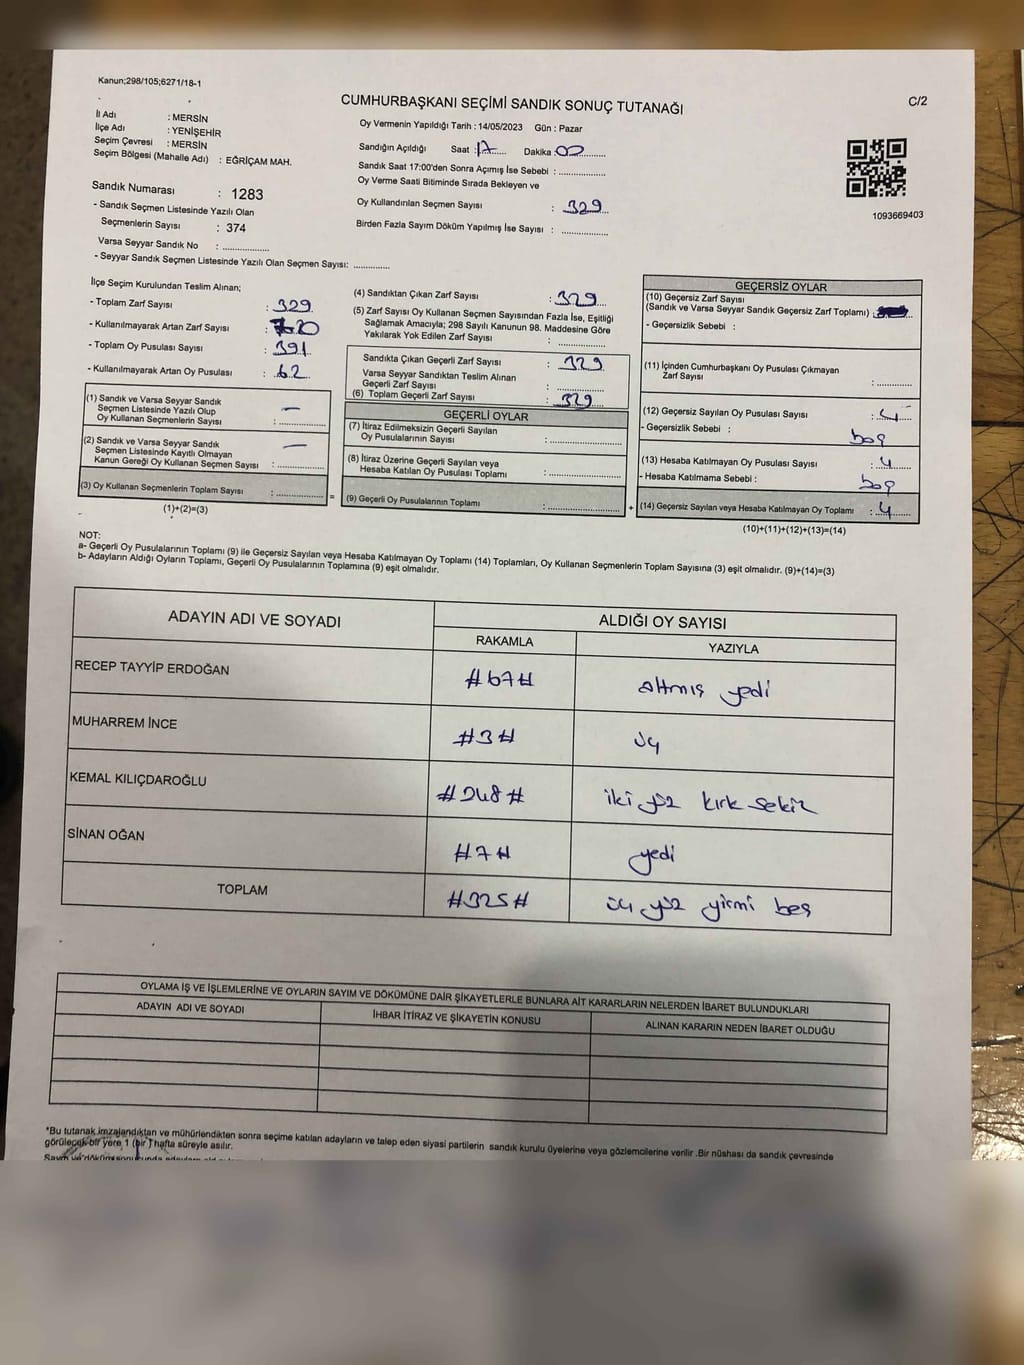 Kanun;298/105;6271/18-1
C/2
CUMHURBAŞKANI SEÇİMİ SANDIK SONUÇ TUTANAĞI
İl Adı : MERSİN
İlçe Adı : YENİŞEHİR
Seçim Çevresi : MERSİN
Seçim Bölgesi (Mahalle Adı) : EĞRİÇAM MAH.
Sandık Numarası : 1283
- Sandık Seçmen Listesinde Yazılı Olan
Seçmenlerin Sayısı : 374
Varsa Seyyar Sandık No : ..............
- Seyyar Sandık Seçmen Listesinde Yazılı Olan Seçmen Sayısı: ..............
Oy Vermenin Yapıldığı Tarih : 14/05/2023 Gün : Pazar
Sandığın Açıldığı Saat : 17 Dakika : 00
Sandık Saat 17:00'den Sonra Açımış İse Sebebi : ..............
Oy Verme Saati Bitiminde Sırada Bekleyen ve
Oy Kullandırılan Seçmen Sayısı : 329
Birden Fazla Sayım Döküm Yapılmış İse Sayısı : ..............
1093669403
İlçe Seçim Kurulundan Teslim Alınan;
- Toplam Zarf Sayısı : 329
- Kullanılmayarak Artan Zarf Sayısı : 20
- Toplam Oy Pusulası Sayısı : 391
- Kullanılmayarak Artan Oy Pusulası : 62
(1) Sandık ve Varsa Seyyar Sandık
Seçmen Listesinde Yazılı Olup
Oy Kullanan Seçmenlerin Sayısı : —
(2) Sandık ve Varsa Seyyar Sandık
Seçmen Listesinde Kayıtlı Olmayan
Kanun Gereği Oy Kullanan Seçmen Sayısı : —
(3) Oy Kullanan Seçmenlerin Toplam Sayısı : .............. =
(1)+(2)=(3)
(4) Sandıktan Çıkan Zarf Sayısı : 329
(5) Zarf Sayısı Oy Kullanan Seçmen Sayısından Fazla İse, Eşitliği
Sağlamak Amacıyla; 298 Sayılı Kanunun 98. Maddesine Göre
Yakılarak Yok Edilen Zarf Sayısı : ..............
Sandıkta Çıkan Geçerli Zarf Sayısı : 329
Varsa Seyyar Sandıktan Teslim Alınan
Geçerli Zarf Sayısı : ..............
(6) Toplam Geçerli Zarf Sayısı : 329
GEÇERLİ OYLAR
(7) İtiraz Edilmeksizin Geçerli Sayılan
Oy Pusulalarının Sayısı : ..............
(8) İtiraz Üzerine Geçerli Sayılan veya
Hesaba Katılan Oy Pusulası Toplamı : ..............
(9) Geçerli Oy Pusulalarının Toplamı : .............. +
GEÇERSİZ OYLAR
(10) Geçersiz Zarf Sayısı
(Sandık ve Varsa Seyyar Sandık Geçersiz Zarf Toplamı) :
- Geçersizlik Sebebi :
(11) İçinden Cumhurbaşkanı Oy Pusulası Çıkmayan
Zarf Sayısı : ..............
(12) Geçersiz Sayılan Oy Pusulası Sayısı : 4
- Geçersizlik Sebebi : boş
(13) Hesaba Katılmayan Oy Pusulası Sayısı : 4
- Hesaba Katılmama Sebebi : boş
(14) Geçersiz Sayılan veya Hesaba Katılmayan Oy Toplamı : 4
(10)+(11)+(12)+(13)=(14)
NOT:
a- Geçerli Oy Pusulalarının Toplamı (9) ile Geçersiz Sayılan veya Hesaba Katılmayan Oy Toplamı (14) Toplamları, Oy Kullanan Seçmenlerin Toplam Sayısına (3) eşit olmalıdır. (9)+(14)=(3)
b- Adayların Aldığı Oyların Toplamı, Geçerli Oy Pusulalarının Toplamına (9) eşit olmalıdır.
ADAYIN ADI VE SOYADI ALDIĞI OY SAYISI
RAKAMLA YAZIYLA
RECEP TAYYİP ERDOĞAN #67# altmış yedi
MUHARREM İNCE #3# üç
KEMAL KILIÇDAROĞLU #248# iki yüz kırk sekiz
SİNAN OĞAN #7# yedi
TOPLAM #325# üç yüz yirmi beş
OYLAMA İŞ VE İŞLEMLERİNE VE OYLARIN SAYIM VE DÖKÜMÜNE DAİR ŞİKAYETLERLE BUNLARA AİT KARARLARIN NELERDEN İBARET BULUNDUKLARI
ADAYIN ADI VE SOYADI İHBAR İTİRAZ VE ŞİKAYETİN KONUSU ALINAN KARARIN NEDEN İBARET OLDUĞU
*Bu tutanak imzalandıktan ve mühürlendikten sonra seçime katılan adayların ve talep eden siyasi partilerin sandık kurulu üyelerine veya gözlemcilerine verilir .Bir nüshası da sandık çevresinde
görülecek bir yere 1 (bir ) hafta süreyle asılır.